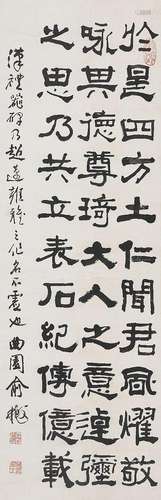 於是四方士仁聞君風燿敬
咏其德尊琦大人之意逴彌
之思乃共立表石紀傳億載
漢禮器碑乃之作名不虛也曲園俞樾